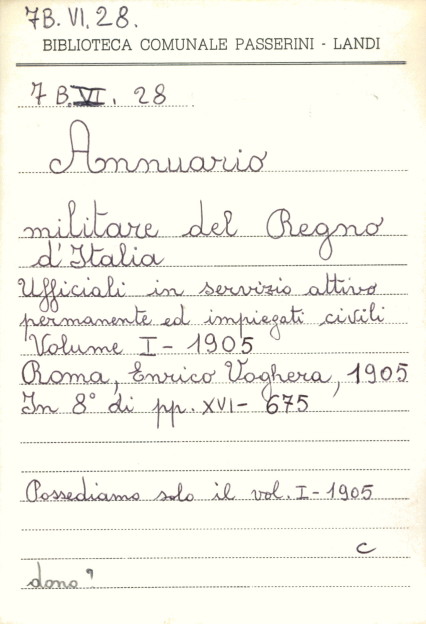 7B. VI. 28.
BIBLIOTECA COMUNALE PASSERINI - LANDI
7 B. VI. 28
Annuario
militare del Regno
d'Italia
Ufficiali in servizio attivo
permanente ed impiegati civili
Volume I - 1905
Roma, Enrico Voghera, 1905
In 8° di pp. XVI - 675
Possediamo solo il vol. I - 1905
C
dono?